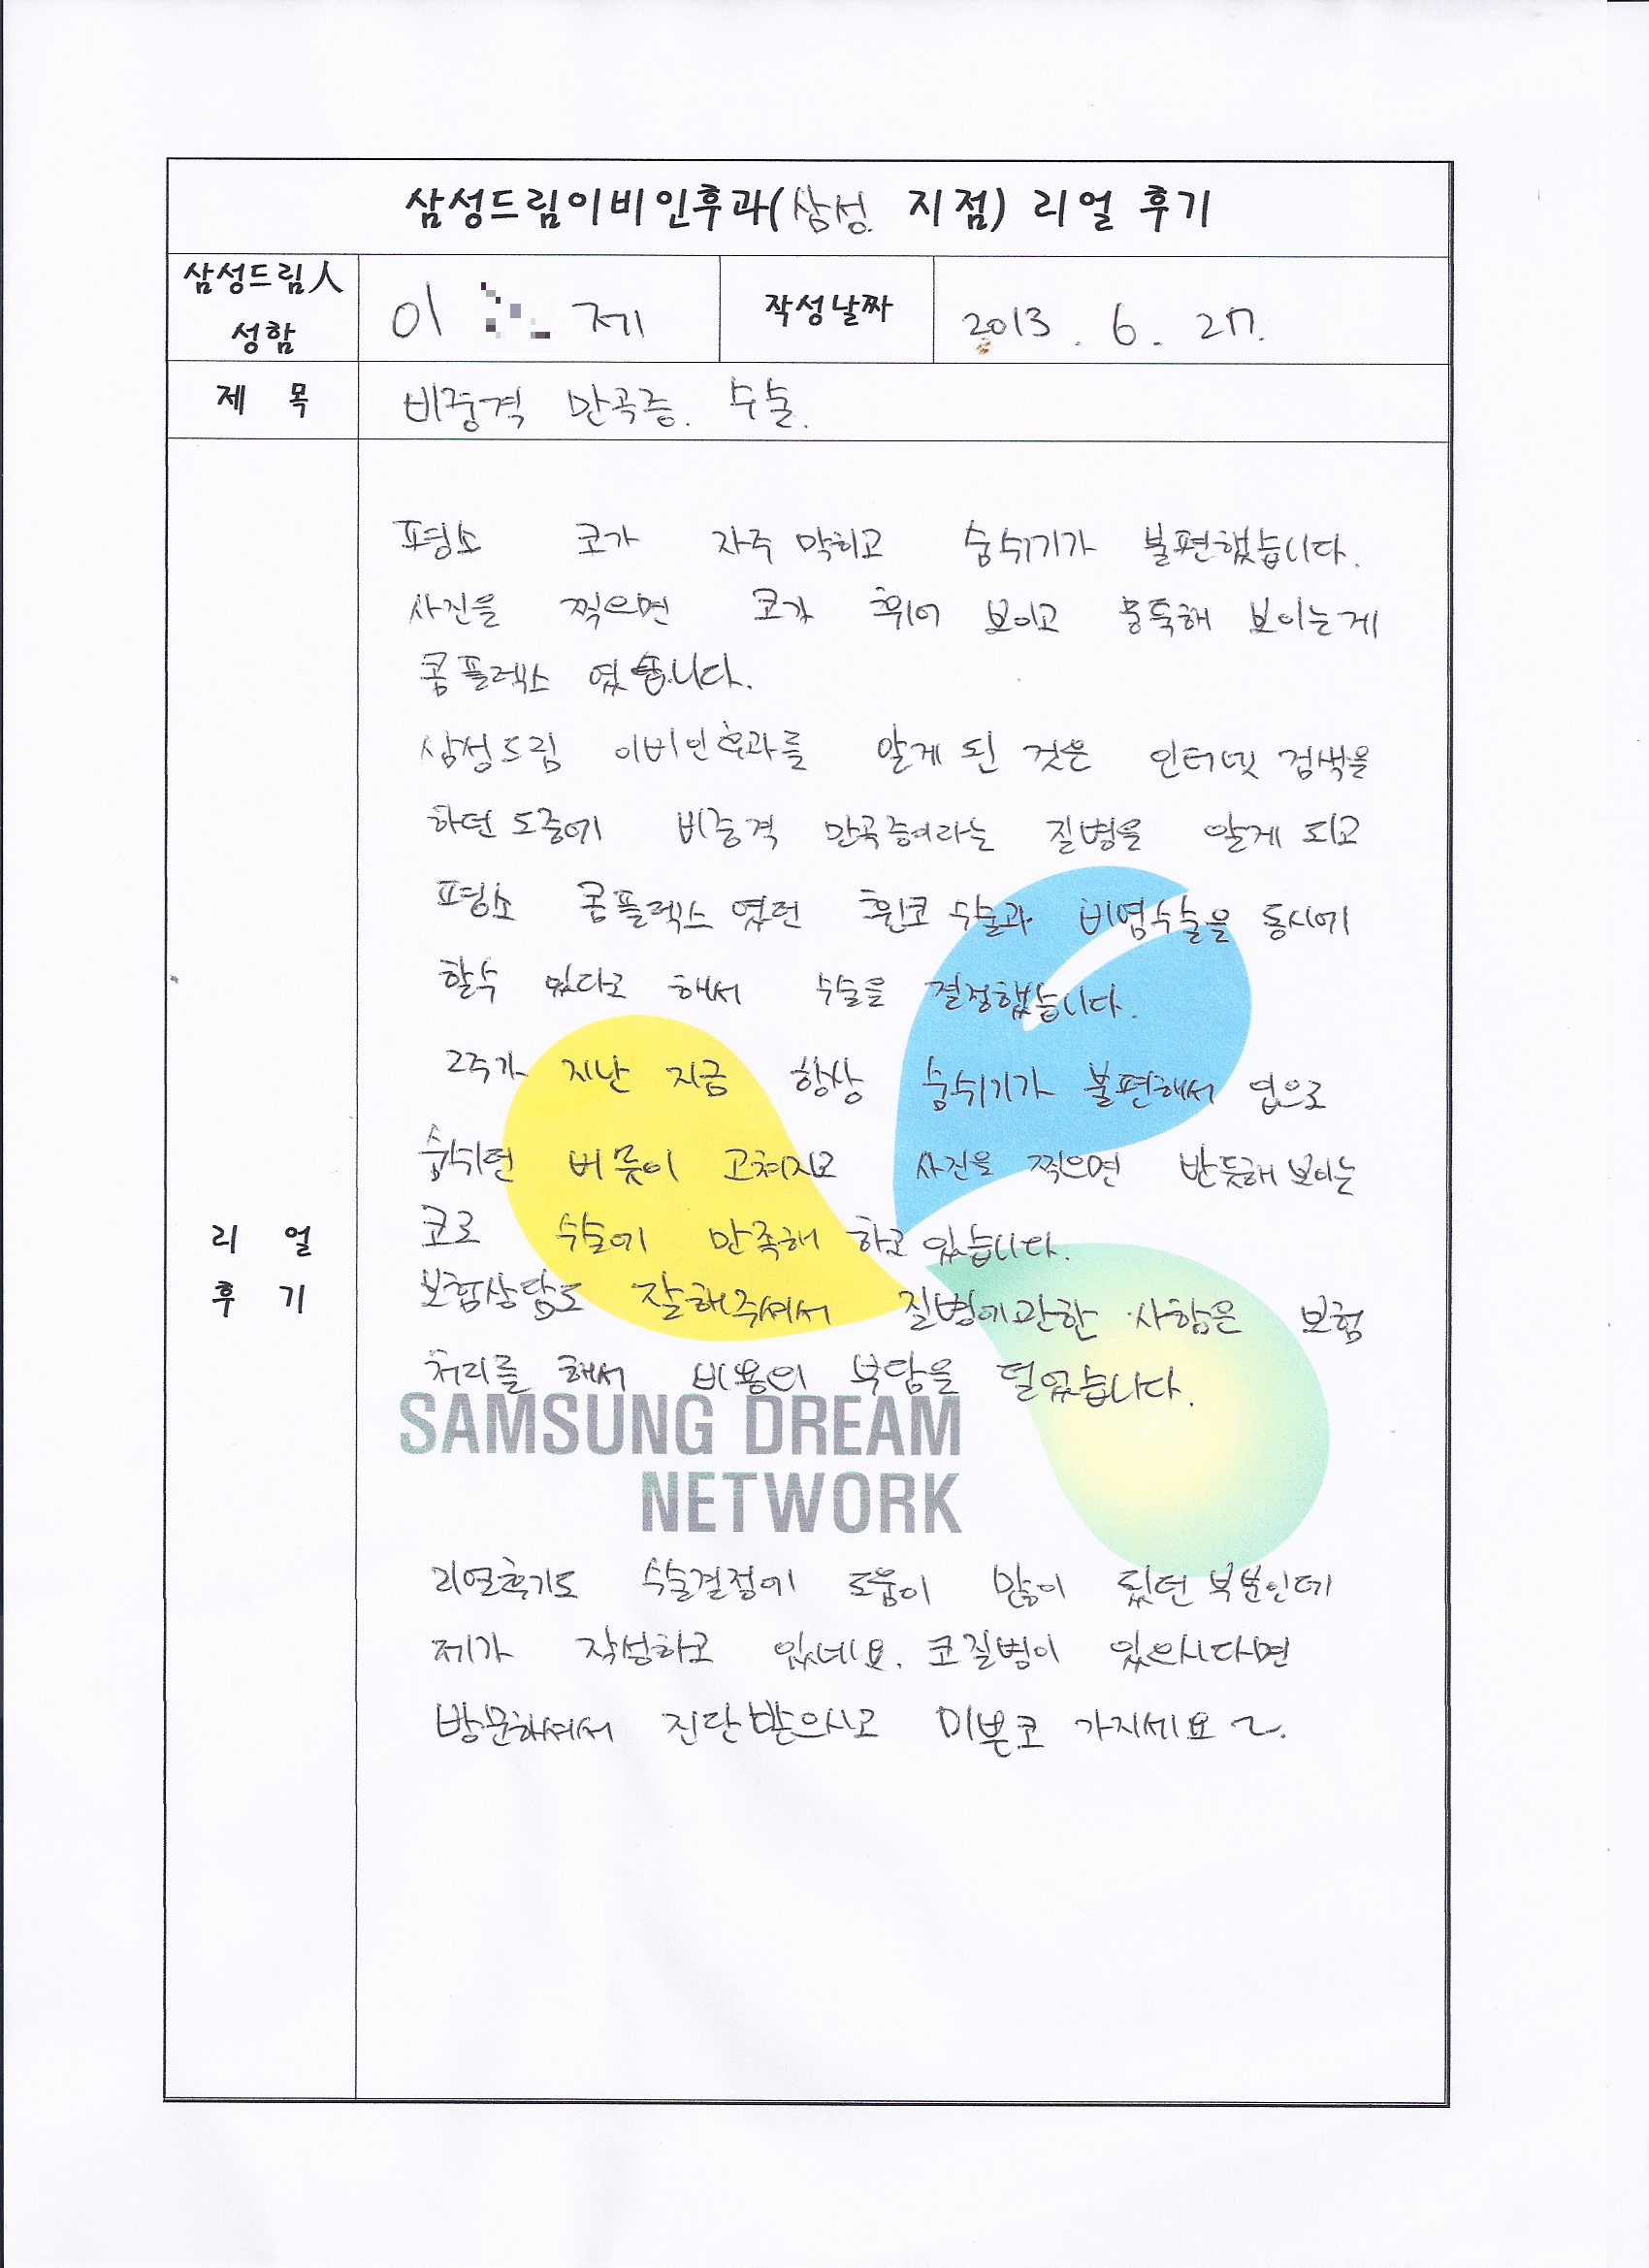 삼성드림이비인후과(삼성 지점) 리얼 후기
삼성드림人
성함
이 제
작성날짜
2013. 6. 27.
제 목
비중격 만곡증. 수술.
평소 코가 자주 막히고 숨쉬기가 불편했습니다.
사진을 찍으면 코가 휘어 보이고 뭉툭해 보이는게
콤플렉스 였습니다.
삼성드림 이비인후과를 알게 된 것은 인터넷 검색을
하던 도중에 비중격 만곡증이라는 질병을 알게 되고
평소 콤플렉스 였던 휜코 수술과 비염수술을 동시에
할수 있다고 해서 수술을 결정했습니다.
2주가 지난 지금 항상 숨쉬기가 불편해서 입으로
숨쉬던 버릇이 고쳐지고 사진을 찍으면 반듯해 보이는
코로 수술에 만족해 하고 있습니다.
보험상담도 잘해주셔서 질병에관한 사항은 보험
처리를 해서 비용의 부담을 덜었습니다.
SAMSUNG DREAM
NETWORK
리얼후기도 수술결정에 도움이 많이 됬던 부분인데
제가 작성하고 있네요. 코질병이 있으시다면
방문하셔서 진단받으시고 이쁜코 가지세요~.
리 얼
후 기